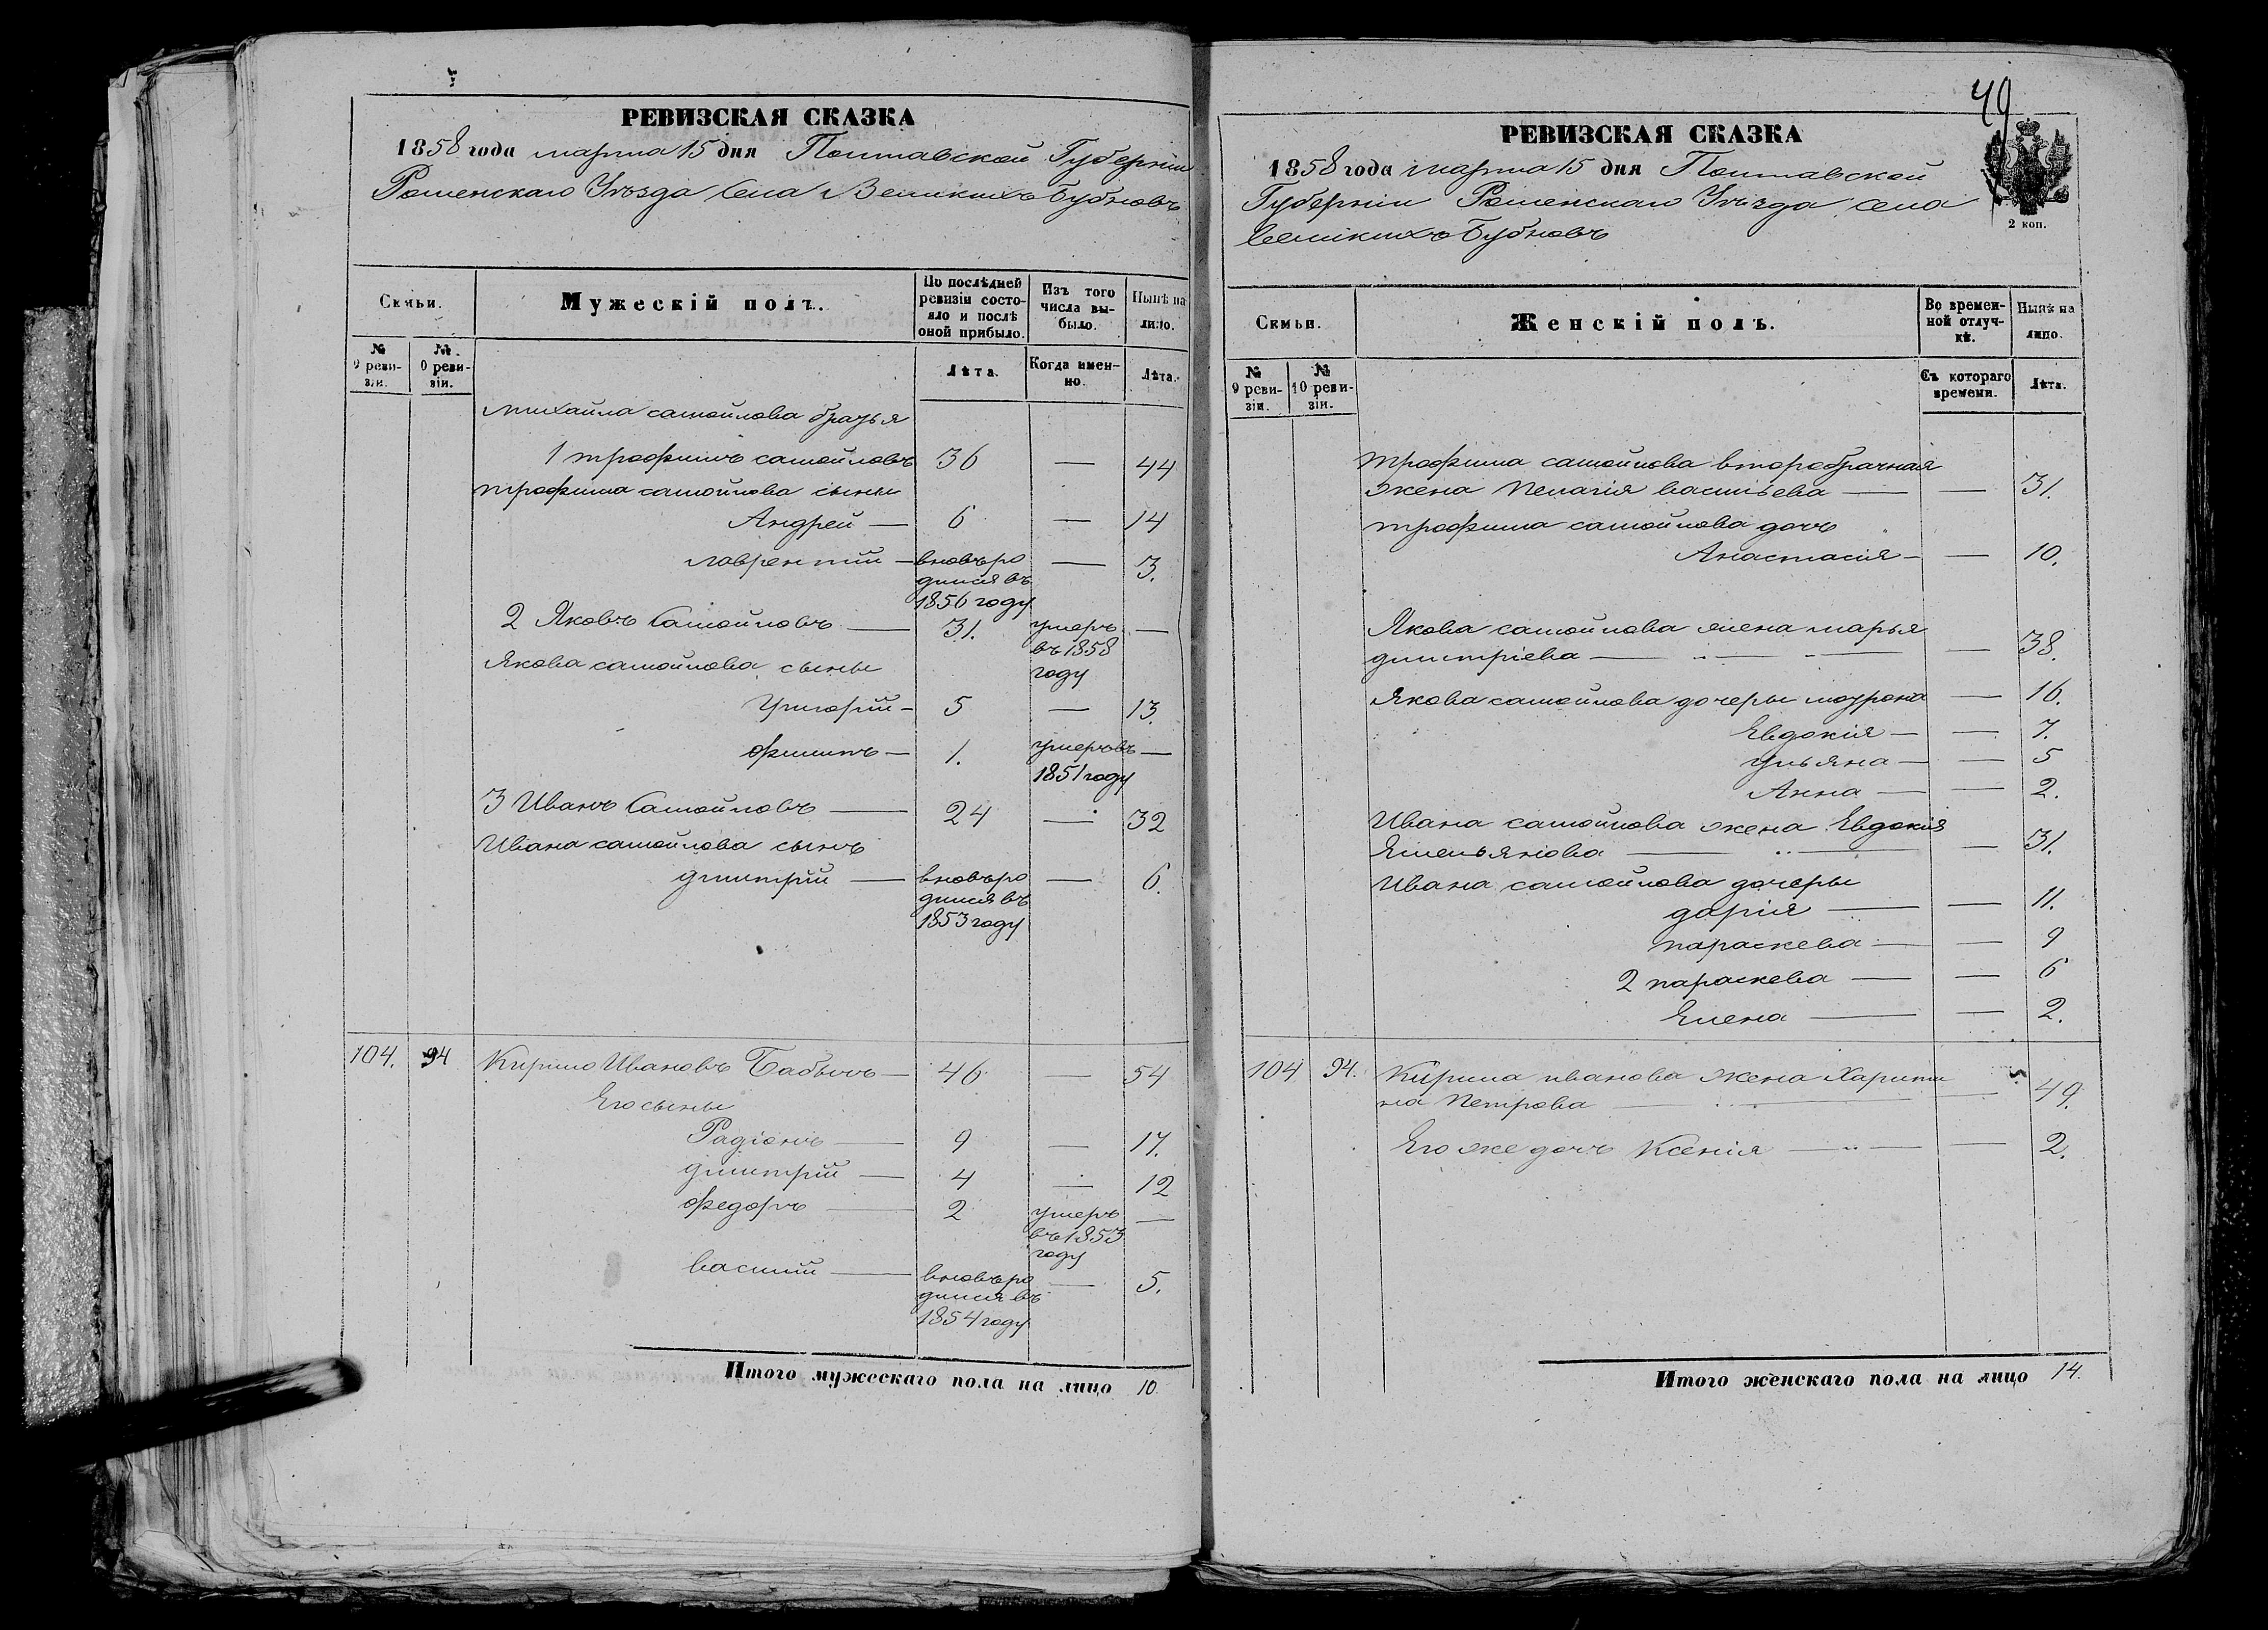 РЕВИЗСКАЯ СКАЗКА
1858 года марта 15 дня Полтавской Губерніи
Роменскаго Уѣзда Села Великихъ Бубновъ
Семьи.
Мужескій полъ.
По послѣдней ревизіи состояло и послѣ оной прибыло.
Изъ того числа выбыло.
Нынѣ на лицо.
№ 9 ревизіи.
№ 0 ревизіи.
Лѣта.
Когда именно.
Лѣта.
Михайла самойлова братья
1 трофимъ самойловъ 36 — 44
трофима самойлова сыны
Андрей — 6 — 14
лаврентій — вновь ро — 3.
дился въ
1856 году
2 Яковъ Самойловъ — 31. умеръ —
въ 1858
Якова самойлова сыны году
Григорій — 5 — 13.
филипъ — 1. умеръ въ —
1851 году
3 Иванъ Самойловъ — 24 — 32
Ивана самойлова сынъ
дмитрій — вновь ро — 6.
дился въ
1853 году
104. 94 Кирило Ивановъ Бабычъ — 46 — 54
Его сыны
Радіонъ — 9 — 17.
дмитрій — 4 — 12
федоръ — 2 умеръ —
въ 1853
году
василій — вновь ро — 5.
дился въ
1854 году
Итого мужескаго пола на лицо 10
49
РЕВИЗСКАЯ СКАЗКА
1858 года марта 15 дня Полтавской
Губерніи Роменскаго Уѣзда села
Великихъ Бубновъ
2 коп.
Семьи.
Женскій полъ.
Во временной отлучкѣ.
Нынѣ на лицо.
№ 9 ревизіи.
№ 10 ревизіи.
Съ котораго времени.
Лѣта.
трофима самойлова второбрачная
жена Пелагія васильева — — 31.
трофима самойлова дочь
Анастасія — — 10.
Якова самойлова жена марья
дмитріева — — 38.
Якова самойлова дочеры мотрона — 16.
Евдокія — — 7.
ульяна — — 5
Анна — — 2.
Ивана самойлова жена Евдокія
Ямельянова — — 31.
Ивана самойлова дочеры
дарія — — 11.
параскева — — 9
2 параскева — — 6
Елена — — 2.
104 94. Кирила иванова жена Харити
на Петрова — — 49.
Его же дочь Ксенія — — 2.
Итого женскаго пола на лицо 14.